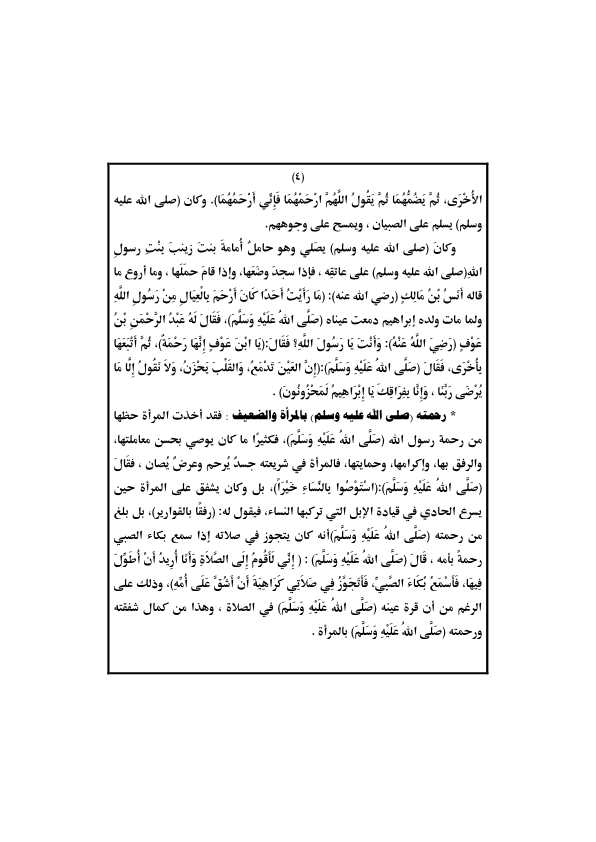 (٤)
الأُخْرَى، ثُمَّ يَضُمُّهُمَا ثُمَّ يَقُولُ اللَّهُمَّ ارْحَمْهُمَا فَإِنِّي أَرْحَمُهُمَا). وكان (صلى الله عليه
وسلم) يسلم على الصبيان ، ويمسح على وجوههم.
وكانَ (صلى الله عليه وسلم) يصَلي وهو حاملٌ أُمامةَ بنتَ زينبَ بنْتِ رسولِ
اللهِ(صلى الله عليه وسلم) على عاتقِه ، فإذا سجدَ وضَعَها، وإذا قامَ حملَها ، وما أروع ما
قاله أَنَسُ بْنُ مَالِكٍ (رضي الله عنه): (مَا رَأَيْتُ أَحَدًا كَانَ أَرْحَمَ بِالْعِيَالِ مِنْ رَسُولِ اللَّهِ
ولما مات ولده إبراهيم دمعت عيناه (صَلَّى اللهُ عَلَيْهِ وَسَلَّمَ)، فَقَالَ لَهُ عَبْدُ الرَّحْمَنِ بْنُ
عَوْفٍ (رَضِيَ اللَّهُ عَنْهُ): وَأَنْتَ يَا رَسُولَ اللَّهِ؟ فَقَالَ:(يَا ابْنَ عَوْفٍ إِنَّهَا رَحْمَةٌ)، ثُمَّ أَتْبَعَهَا
بِأُخْرَى، فَقَالَ (صَلَّى اللهُ عَلَيْهِ وَسَلَّمَ):(إِنَّ العَيْنَ تَدْمَعُ، وَالقَلْبَ يَحْزَنُ، وَلاَ نَقُولُ إِلَّا مَا
يُرْضَى رَبُّنَا ، وَإِنَّا بِفِرَاقِكَ يَا إِبْرَاهِيمُ لَمَحْزُونُونَ) .
* رحمته (صلى الله عليه وسلم) بالمرأة والضعيف : فقد أخذت المرأة حظها
من رحمة رسول الله (صَلَّى اللهُ عَلَيْهِ وَسَلَّمَ)، فكثيرًا ما كان يوصي بحسن معاملتها،
والرفق بها، وإكرامها، وحمايتها، فالمرأة في شريعته جسدٌ يُرحم وعرضٌ يُصان ، فَقَالَ
(صَلَّى اللهُ عَلَيْهِ وَسَلَّمَ):(اسْتَوْصُوا بِالنِّسَاءِ خَيْرًا)، بل وكان يشفق على المرأة حين
يسرع الحادي في قيادة الإبل التي تركبها النساء، فيقول له: (رفقًا بالقوارير)، بل بلغ
من رحمته (صَلَّى اللهُ عَلَيْهِ وَسَلَّمَ)أنه كان يتجوز في صلاته إذا سمع بكاء الصبي
رحمةً بأمه ، قَالَ (صَلَّى اللهُ عَلَيْهِ وَسَلَّمَ) : ( إِنِّي لَأَقُومُ إِلَى الصَّلاَةِ وَأَنَا أُرِيدُ أَنْ أُطَوِّلَ
فِيهَا، فَأَسْمَعُ بُكَاءَ الصَّبِيِّ، فَأَتَجَوَّزُ فِي صَلاَتِي كَرَاهِيَةَ أَنْ أَشُقَّ عَلَى أُمِّهِ)، وذلك على
الرغم من أن قرة عينه (صَلَّى اللهُ عَلَيْهِ وَسَلَّمَ) في الصلاة ، وهذا من كمال شفقته
ورحمته (صَلَّى اللهُ عَلَيْهِ وَسَلَّمَ) بالمرأة .